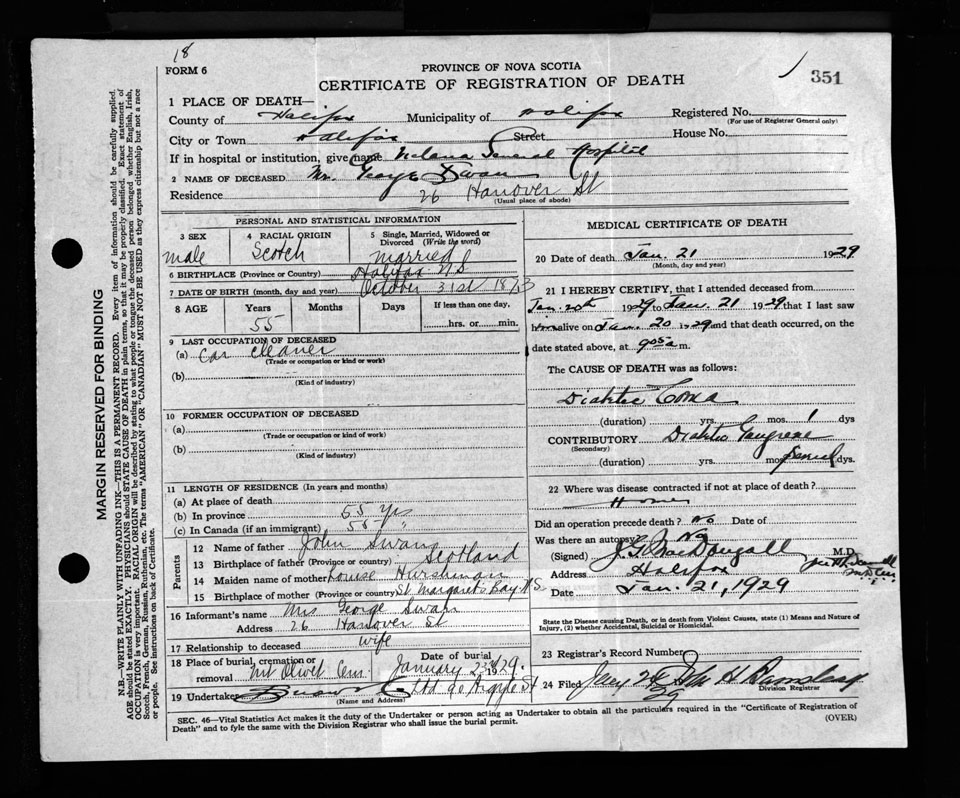 18
FORM 6
PROVINCE OF NOVA SCOTIA
CERTIFICATE OF REGISTRATION OF DEATH
351
1 PLACE OF DEATH—
County of Halifax Municipality of Halifax Registered No.
(For use of Registrar General only)
City or Town Halifax Street House No.
If in hospital or institution, give name Victoria General Hospital
2 NAME OF DECEASED Mr. George Swan
Residence 26 Hanover St
(Usual place of abode)
PERSONAL AND STATISTICAL INFORMATION
3 SEX
male
4 RACIAL ORIGIN
Scotch
5 Single, Married, Widowed or
Divorced (Write the word)
married
6 BIRTHPLACE (Province or Country) Halifax N.S
7 DATE OF BIRTH (month, day and year) October 31st 1873
8 AGE Years Months Days If less than one day,
55 hrs. or min.
9 LAST OCCUPATION OF DECEASED
(a) Car cleaner
(Trade or occupation or kind or work)
(b)
(Kind of industry)
10 FORMER OCCUPATION OF DECEASED
(a)
(Trade or occupation or kind of work)
(b)
(Kind of industry)
11 LENGTH OF RESIDENCE (In years and months)
(a) At place of death
(b) In province 55 yrs
(c) In Canada (if an immigrant) 55 "
Parents
12 Name of father John Swan
13 Birthplace of father (Province or country) Scotland
14 Maiden name of mother Louise
15 Birthplace of mother (Province or country) St Margarets Bay N S
16 Informant's name Mrs George Swan
Address 26 Hanover St
17 Relationship to deceased wife
18 Place of burial, cremation or removal Mt Olivet Cem. Date of burial January 23rd /29.
19 Undertaker Snow Co Ltd 90 Argyle St
(Name and Address)
MEDICAL CERTIFICATE OF DEATH
20 Date of death Jan. 21 1929
(Month, day and year)
21 I HEREBY CERTIFY, that I attended deceased from
Jan. 20th 1929 to Jan. 21 1929 that I last saw
him alive on Jan. 20 1929 and that death occurred, on the
date stated above, at 9 05 a m.
The CAUSE OF DEATH was as follows:
Diabetic Coma
(duration) yrs. mos. 1 dys
CONTRIBUTORY Diabetic Gangrene
(Secondary)
(duration) yrs. mos. Several dys.
22 Where was disease contracted if not at place of death?
Home
Did an operation precede death? No Date of
Was there an autopsy? No
(Signed) J G MacDougall M.D.
Address Halifax
Date Jan. 21, 1929
State the Disease causing Death, or in death from Violent Causes, state (1) Means and Nature of
Injury, (2) whether Accidental, Suicidal or Homicidal.
23 Registrar's Record Number
24 Filed
Division Registrar
SEC. 46—Vital Statistics Act makes it the duty of the Undertaker or person acting as Undertaker to obtain all the particulars required in the "Certificate of Registration of
Death" and to fyle the same with the Division Registrar who shall issue the burial permit.
(OVER)
MARGIN RESERVED FOR BINDING
N.B.—WRITE PLAINLY WITH UNFADING INK—THIS IS A PERMANENT RECORD. Every item of information should be carefully supplied.
AGE should be stated EXACTLY. PHYSICIANS should STATE CAUSE OF DEATH in plain terms, so that it may be properly classified. Exact statement of
OCCUPATION is very important. RACIAL ORIGIN will be described by stating to what people or tongue the deceased person belonged whether English, Irish,
Scotch, French, German, Russian, Ruthenian, etc. The terms "AMERICAN" OR "CANADIAN" MUST NOT BE USED as they express citizenship but not a race
or people. See instructions on back of Certificate.